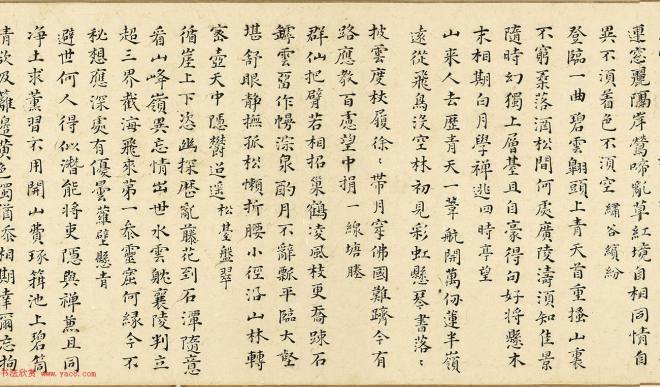 連窓麗隝岸鶯啼亂草紅境自相同情自
異不須着色不須空 繡谷繽紛
登臨一曲碧雲翺頭上青天首重搔山裏
不窮桑落酒松間何處廣陵濤須知佳景
隨時幻獨上層基且自豪得句好將懸木
末相期白月學禪逃 四時亭望
山來人去歷青天一葦航開萬仞蓮半嶺
遠從飛鳥沒空林初見彩虹懸琴書落〻
披雲度杖履徐〻帶月穿佛國難躋今有
路應教百慮望中捐 一線塘塍
群仙把臂若相招巢鶴凌風枝更喬踈石
罅雲留作幔深泉酌月不辭瓢平臨大壑
堪舒眼静撫孤松懶折腰小徑沿山林轉
密壺天中隱欝迢遥 松臺盤翠
循崖上下恣幽探歷亂藤花到石潭隨意
看山峰嶺異忘情出世水雲躭襄陵判立
超三界截海飛來第一叅靈窟何緣今不
秘想應深處有優曇 蘿壁懸青
避世何人得似潛能將吏隱與禪兼且同
淨土求薰習不用開山費琢
池上碧筒
青欲及籬邊黄色蜀酒忝相期幸爾忘拘
书法欣赏 www.yac8.com